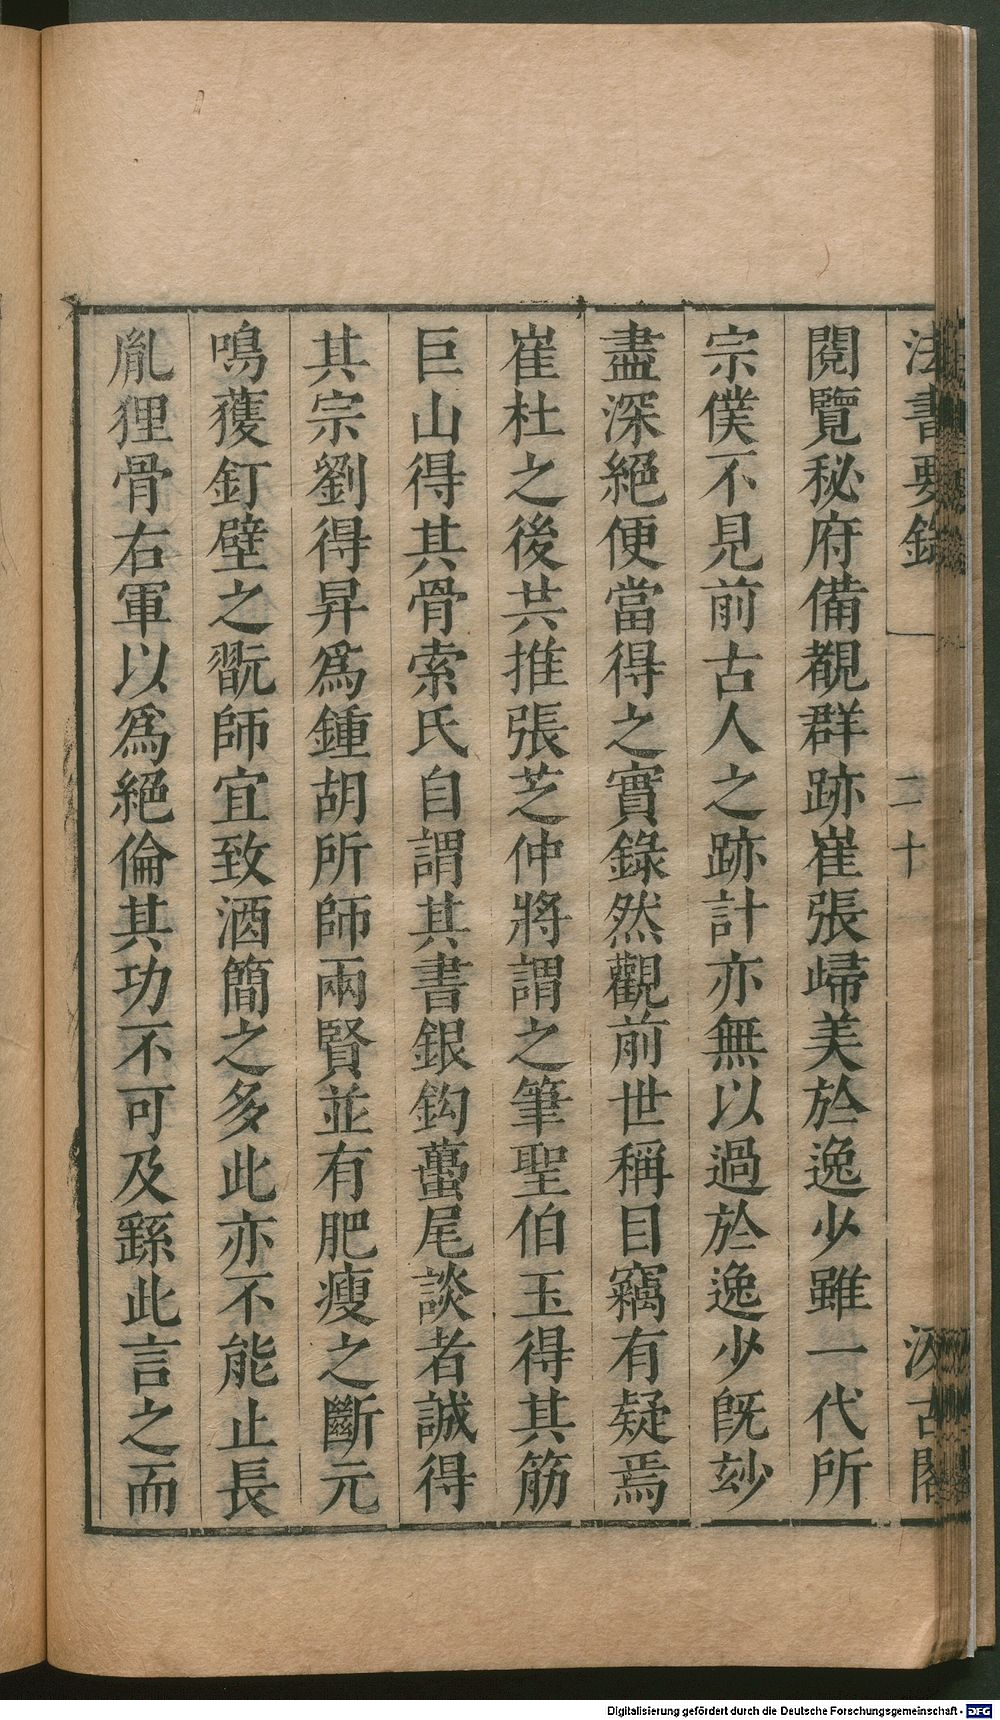 法書要錄 二十 汲古閣
閱覽秘府備覩群跡崔張歸美於逸少雖一代所
宗僕不見前古人之跡計亦無以過於逸少旣玅
盡深絕便當得之實錄然觀前世稱目竊有疑焉
崔杜之後共推張芝仲將謂之筆聖伯玉得其筋
巨山得其骨索氏自謂其書銀鈎蠆尾談者誠得
其宗劉得昇爲鍾胡所師兩賢並有肥瘦之斷元
鳴獲釘壁之翫師宜致酒簡之多此亦不能止長
胤狸骨右軍以爲絕倫其功不可及繇此言之而
Digitalisierung gefördert durch die Deutsche Forschungsgemeinschaft - DFG